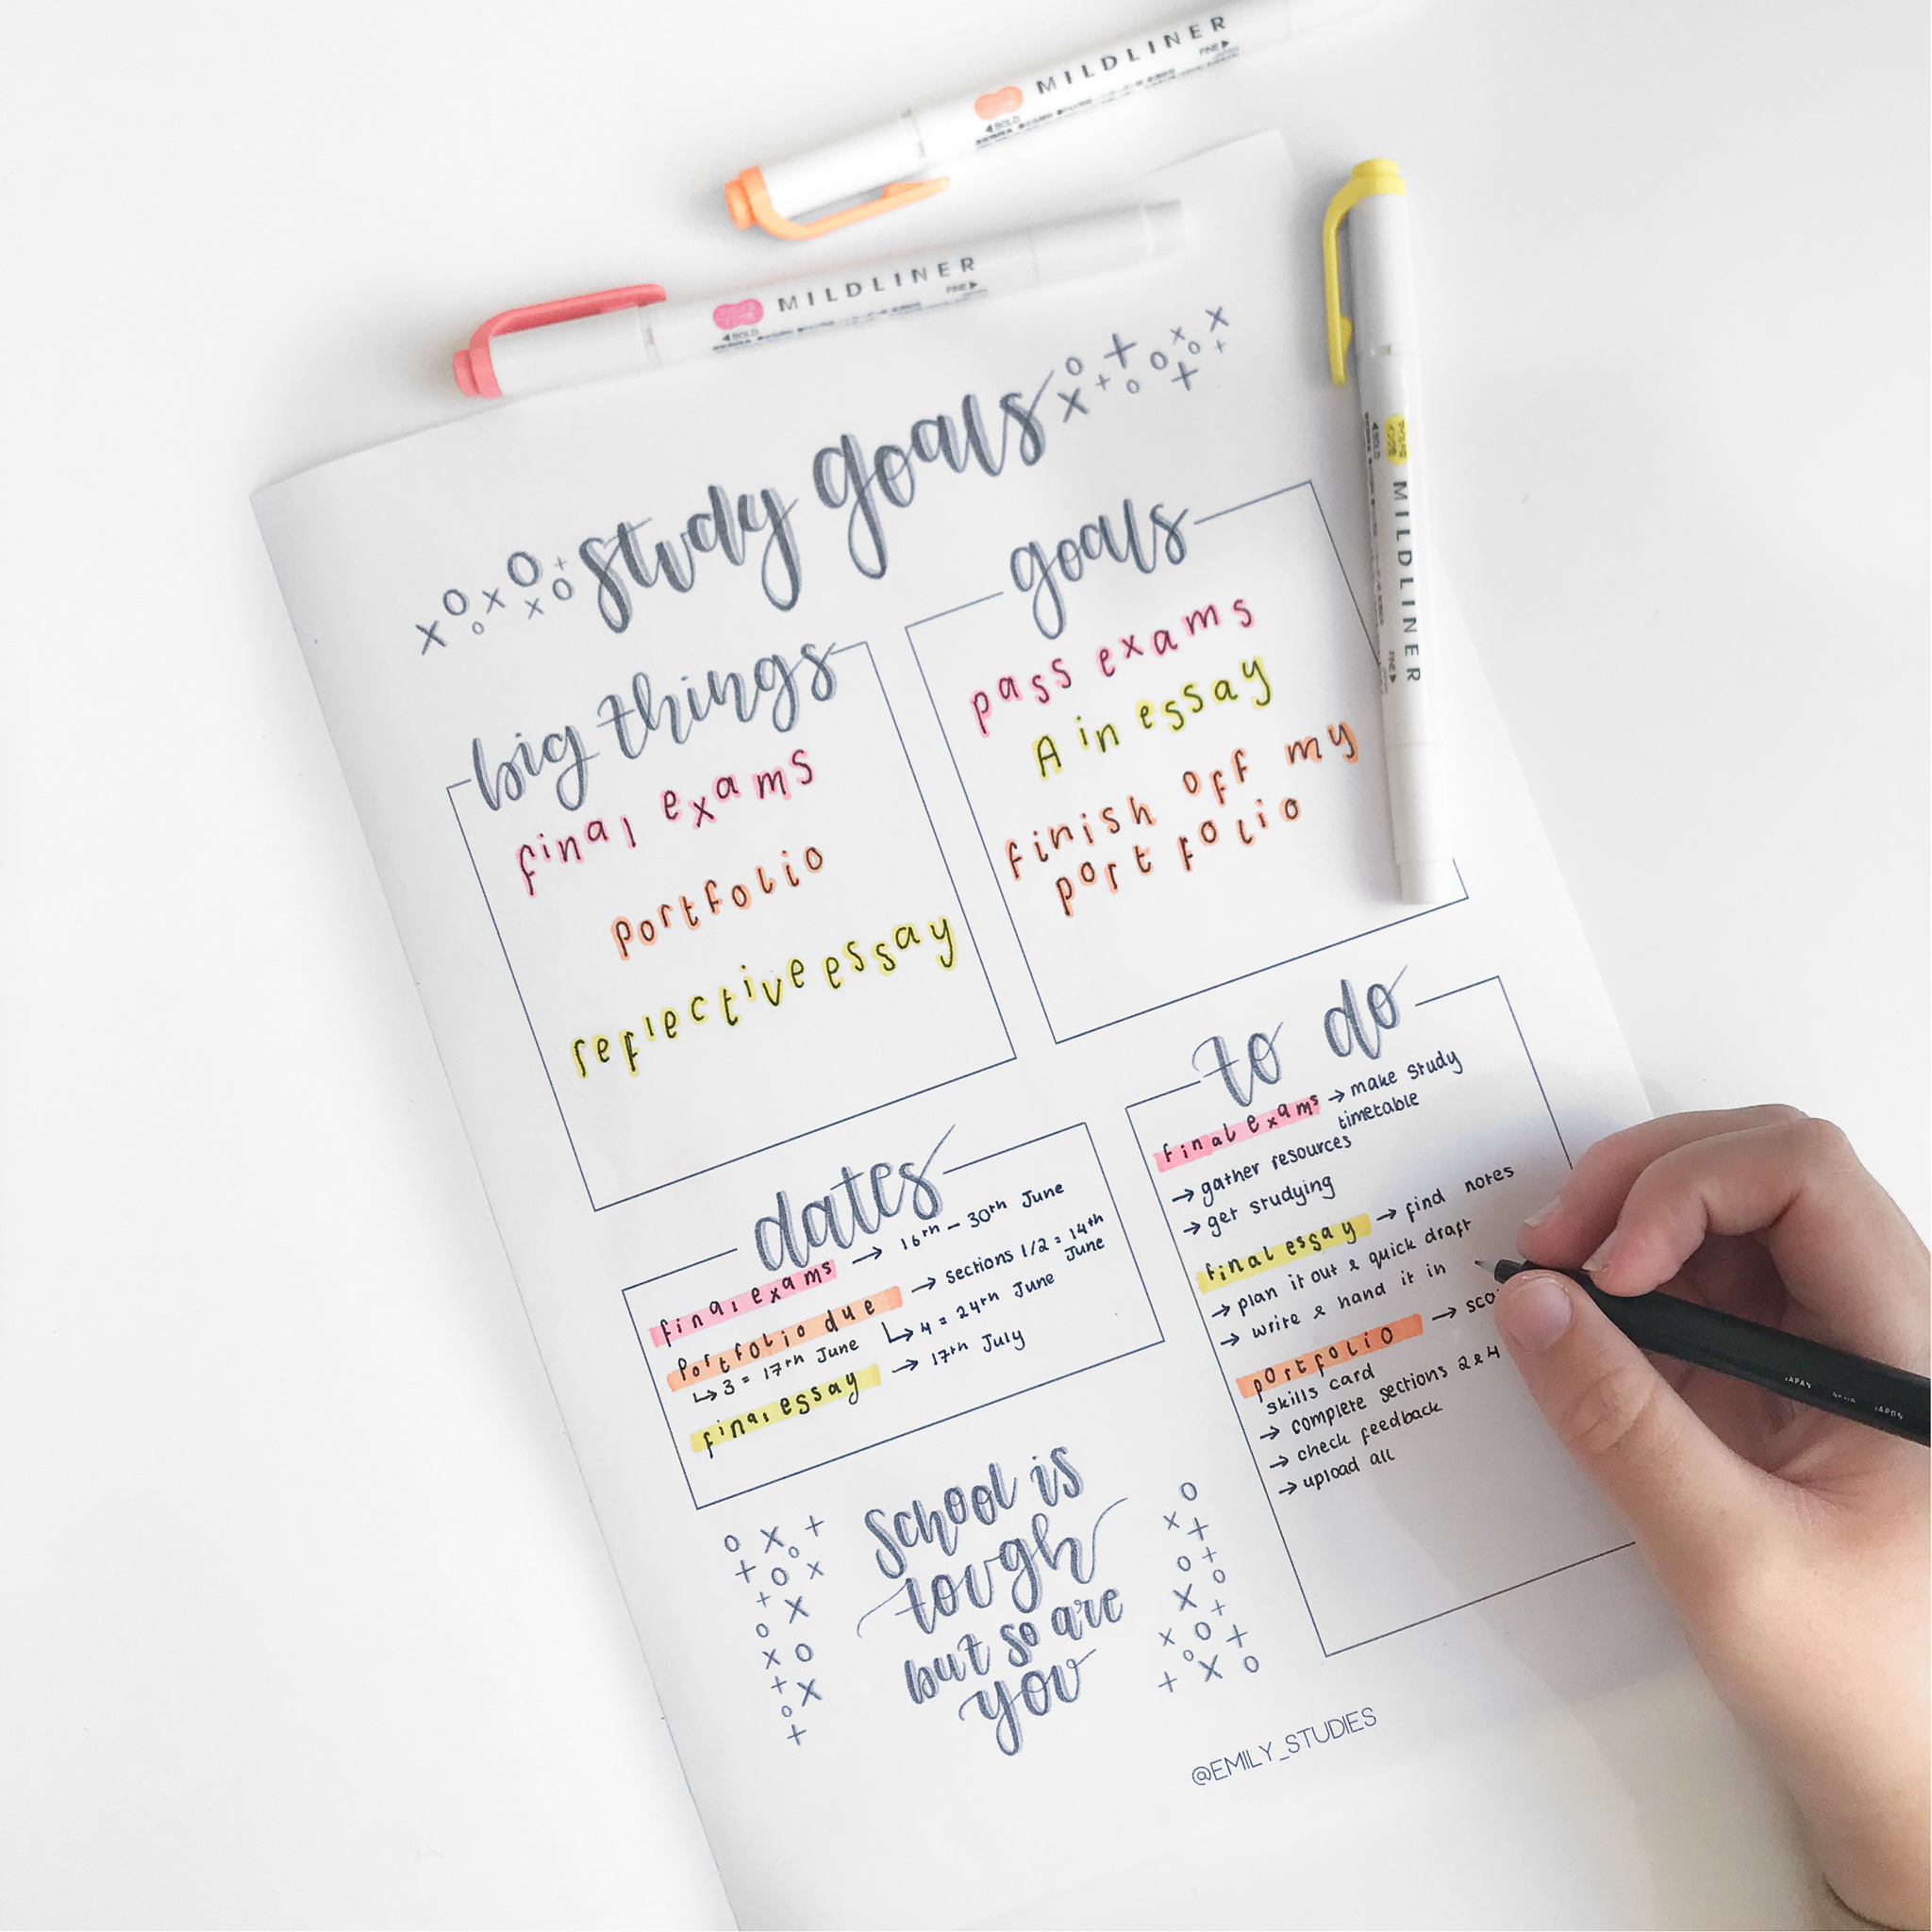 MILDLINER
FINE
BOLD
MILDLINER
FINE
BOLD
MILDLINER
FINE
BOLD
study goals
big things
final exams
portfolio
reflective essay
goals
pass exams
A in essay
finish off my
portfolio
dates
final exams → 16th - 30th June
Portfolio due → sections 1/2 = 14th
June
↳ 3 = 17th June ↳ 4 = 24th June
final essay → 17th July
to do
final exams → make study
timetable
→ gather resources
→ get studying
final essay → find notes
→ plan it out & quick draft
→ write & hand it in
portfolio →
skills card
→ complete sections 2&4
→ check feedback
→ upload all
school is
tough
but so are
you
@EMILY_STUDIES
JAPAN
JAPAN